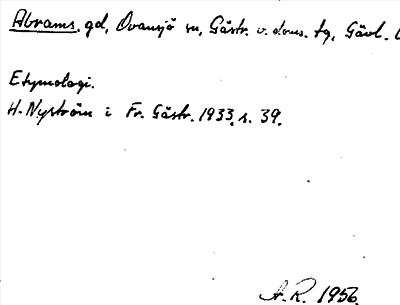 Abrams. gd, Ovansjö sn, Gästr. v. doms. tg, Gävl. l
Etymologi.
H. Nyström i Fr. Gästr. 1933, s. 39.
A. R. 1956.